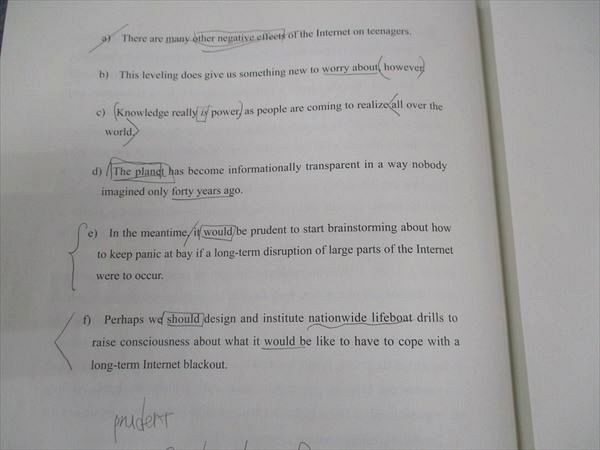 a) There are many other negative effects of the Internet on teenagers.
b) This leveling does give us something new to worry about, however.
c) Knowledge really is power, as people are coming to realize all over the
world.
d) The planet has become informationally transparent in a way nobody
imagined only forty years ago.
e) In the meantime, it would be prudent to start brainstorming about how
to keep panic at bay if a long-term disruption of large parts of the Internet
were to occur.
f) Perhaps we should design and institute nationwide lifeboat drills to
raise consciousness about what it would be like to have to cope with a
long-term Internet blackout.
prudent